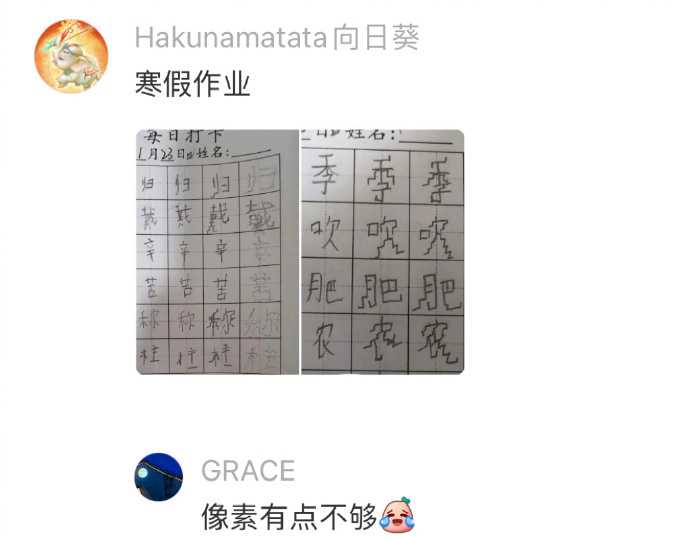 Hakunamatata向日葵
寒假作业
每日打卡
1月23日 姓名:
归 归 归 归
戴 戴 戴 戴
辛 辛 辛 辛
苦 苦 苦 苦
称 称 称 称
柱 柱 柱 柱
日 姓名:
季 季 季
吹 吹 吹
肥 肥 肥
农 农 农
GRACE
像素有点不够